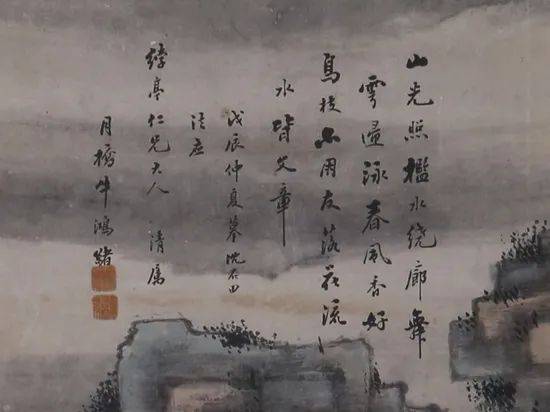 山光照檻水繞廊舞
雩歸詠春風香好
鳥枝亦朋友落花流
水皆文章
戊辰仲夏摹沈石田
法應
亭仁兄大人 清屬
月橋牛鴻緒